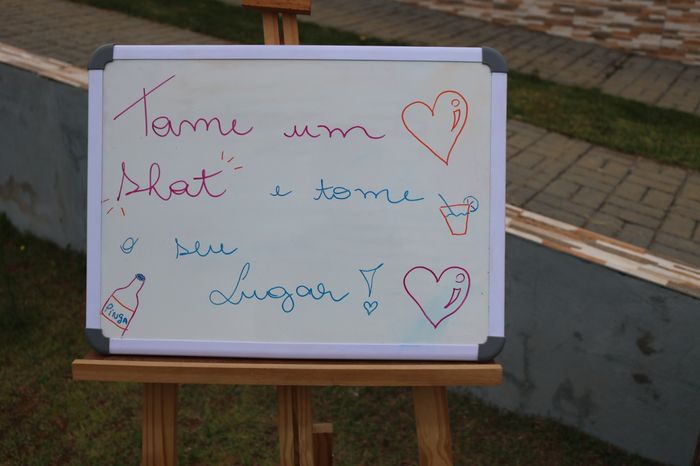 Tome um
Shot e tome
o seu
Lugar!
PINGA